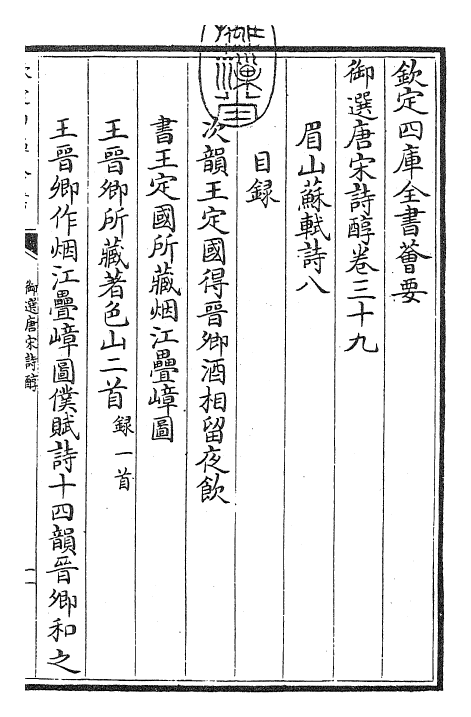 欽定四庫全書薈要
御選唐宋詩醇卷三十九
眉山蘇軾詩八
目録
次韻王定國得晉卿酒相留夜飲
書王定國所藏烟江疊嶂圖
王晉卿所藏著色山二首録一首
王晉卿作烟江疊嶂圖僕賦詩十四韻晉卿和之
御選唐宋詩醇